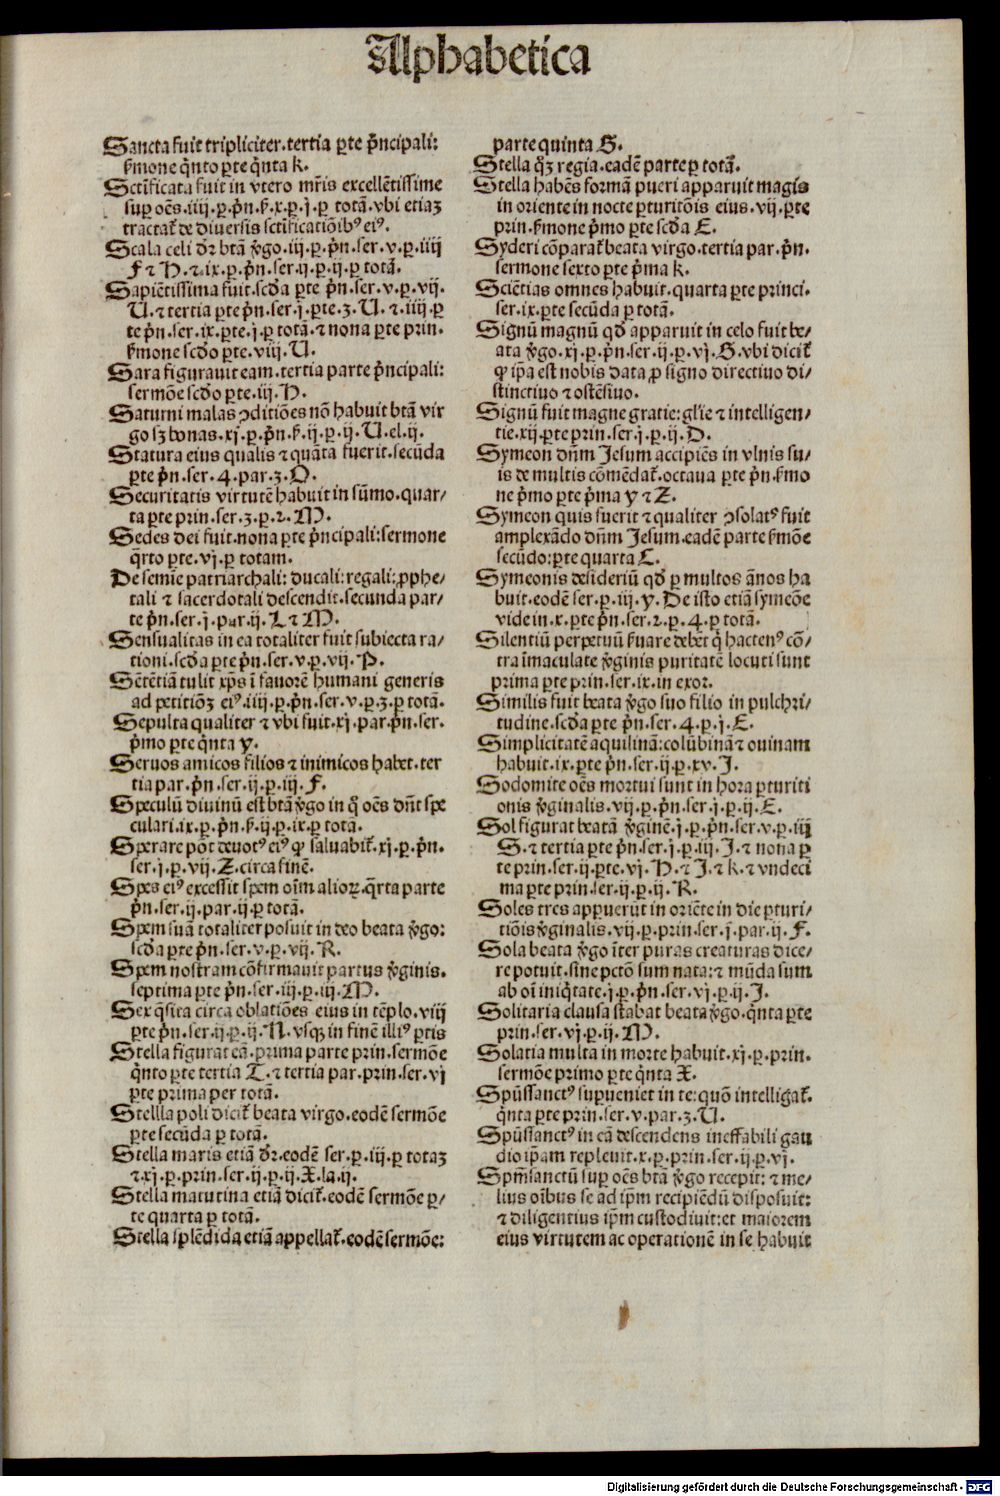 Alphabetica
Sancta fuit tripliciter.tertia ꝑte p̄ncipali:
ẜmone q̄nto ꝑte q̄nta K.
Sctīficata fuit in vtero mr̄is excellētissime
suꝑ oēs.iiij.p.p̄n.ẜ.x.p.j.ꝑ totā.vbi etiaꝫ
tractat̄ de diuersis sctīficatiōibꝰ eiꝰ.
Scala celi dr̄ btā ꝟgo.iij.p.p̄n.ser.v.p.iiij
F ⁊ H.⁊.ix.p.p̄n.ser.ij.p.ij.ꝑ totā.
Sapiētissima fuit.scd̄a ꝑte p̄n.ser.v.p.vij.
U.⁊ tertia ꝑte p̄n.ser.j.ꝑte.3.U.⁊.iiij.ꝑ
te p̄n.ser.ix.ꝑte.j.ꝑ totā.⁊ nona ꝑte prin.
ẜmone scd̄o ꝑte.viij.U.
Sara figurauit eam.tertia parte p̄ncipali:
sermōe scd̄o ꝑte.iij.H.
Saturni malas ꝯditiōes nō habuit btā vir
go sꝫ bonas.xj.p.p̄n.ẜ.ij.p.ij.U.el.ij.
Statura eius qualis ⁊ quāta fuerit.secūda
ꝑte p̄n.ser.4.par.3.O.
Securitatis virtutē habuit in sūmo.quar/
ta ꝑte prin.ser.3.p.2.M.
Sedes dei fuit.nona ꝑte p̄ncipali:sermone
q̄rto ꝑte.vj.ꝑ totam.
De semīe patriarchali: ducali: regali: ꝓphe/
tali ⁊ sacerdotali descendit.secunda par/
te p̄n.ser.j.par.ij.L ⁊ M.
Sensualitas in ea totaliter fuit subiecta ra/
tioni.scd̄a ꝑte p̄n.ser.v.p.vij.P.
Sētētiā tulit xp̄s ī fauorē humani generis
ad petitiōꝫ eiꝰ.iiij.p.p̄n.ser.v.p.3.ꝑ totā.
Sepulta qualiter ⁊ vbi fuit.xj.par.p̄n.ser.
p̄mo ꝑte q̄nta y.
Seruos amicos filios ⁊ inimicos habet.ter
tia par.p̄n.ser.ij.p.iij.F.
Speculū diuinū est btā ꝟgo in q̄ oēs dn̄t spe
culari.ix.p.p̄n.ẜ.ij.p.ix.ꝑ totā.
Sperare pōt deuotꝰ eiꝰ ꝙ saluabit̄.xj.p.p̄n.
ser.j.p.vij.Z.circa finē.
Spes eiꝰ excessit spem oīm alioꝝ.q̄rta parte
p̄n.ser.ij.par.ij.ꝑ totā.
Spem suā totaliter posuit in deo beata ꝟgo:
scd̄a ꝑte p̄n.ser.v.p.vij.R.
Spem nostram cōfirmauit partus ꝟginis.
septima ꝑte p̄n.ser.iij.p.iij.M.
Sex q̄sita circa oblatiōes eius in tēplo.viij
ꝑte p̄n.ser.ij.p.ij.N.vsqꝫ in finē illiꝰ ꝑtis
Stella figurat eā.prima parte prin.sermōe
q̄nto ꝑte tertia T.⁊ tertia par.prin.ser.vj
ꝑte prima per totā.
Stellla poli dicit̄ beata virgo.eodē sermōe
ꝑte secūda ꝑ totā.
Stella maris etiā dr̄.eodē ser.p.iij.ꝑ totaꝫ
⁊.xj.p.prin.ser.ij.p.ij.X.la.ij.
Stella matutina etiā dicit̄.eodē sermōe ꝑ/
te quarta ꝑ totā.
Stella splēdida etiā appellat̄.eodē sermōe:
parte quinta S.
Stella q̄ꝫ regia.eadē parte ꝑ totā.
Stella habēs formā pueri apparuit magis
in oriente in nocte ꝑturitōis eius.vij.ꝑte
prin.ẜmone p̄mo ꝑte scd̄a E.
Syderi cōparat̄ beata virgo.tertia par.p̄n.
sermone sexto ꝑte p̄ma K.
Sciētias omnes habuit.quarta ꝑte princi.
ser.ix.ꝑte secūda ꝑ totā.
Signū magnū qd̄ apparuit in celo fuit be/
ata ꝟgo.xj.p.p̄n.ser.ij.p.vj.S.vbi dicit̄
ꝙ ip̄a est nobis data ꝓ signo directiuo di/
stinctiuo ⁊ ostēsiuo.
Signū fuit magne gratie: gl̄ie ⁊ intelligen/
tie.xij.ꝑte prin.ser.j.p.ij.D.
Symeon dn̄m Jesum accipiēs in vlnis su/
is de multis cōmēdat̄.octaua ꝑte p̄n.ẜmo
ne p̄mo ꝑte p̄ma y ⁊ Z.
Symeon quis fuerit ⁊ qualiter ꝯsolatꝰ fuit
amplexādo dn̄m Jesum.eadē parte ẜmōe
secūdo:ꝑte quarta C.
Symeonis desideriū qd̄ ꝑ multos ānos ha
buit.eodē ser.p.iij.y.De isto etiā symeōe
vide in.x.ꝑte p̄n.ser.2.p.4.ꝑ totā.
Silentiū perpetuū ẜuare debet̄ q̄ hactenꝰ cō/
tra īmaculate ꝟginis puritatē locuti sunt
prima ꝑte prin.ser.ix.in exor.
Similis fuit beata ꝟgo suo filio in pulchri/
tudine.scd̄a ꝑte p̄n.ser.4.p.j.E.
Simplicitatē aquilinā:colūbinā ⁊ ouinam
habuit.ix.ꝑte p̄n.ser.ij.p.xv.J.
Sodomite oēs mortui sunt in hora ꝑturiti
onis ꝟginalis.vij.p.p̄n.ser.j.p.ij.E.
Sol figurat beatā ꝟginē.j.p.p̄n.ser.v.p.iiij
S.⁊ tertia ꝑte p̄n.ser.j.p.iij.J.⁊ nona ꝑ
te prin.ser.ij.ꝑte.vj.H.⁊ J.⁊ K.⁊ vndeci
ma ꝑte prin.ser.ij.p.ij.R.
Soles tres apꝑuerūt in oriēte in die ꝑturi/
tiōis ꝟginalis.vij.p.prin.ser.j.par.ij.F.
Sola beata ꝟgo īter puras creaturas dice/
re potuit.sine pctō sum nata:⁊ mūda sum
ab oī iniq̄tate.j.p.p̄n.ser.vj.p.ij.J.
Solitaria clausa stabat beata ꝟgo.q̄nta ꝑte
prin.ser.vj.p.ij.M.
Solatia multa in morte habuit.xj.p.prin.
sermōe primo ꝑte q̄nta X.
Spūssanctꝰ suꝑueniet in te:quō intelligat̄.
q̄nta ꝑte prin.ser.v.par.3.U.
Spūssanctꝰ in eā descendens ineffabili gau
dio ip̄am repleuit.x.p.prin.ser.ij.p.vj.
Spm̄sanctū suꝑ oēs btā ꝟgo recepit: ⁊ me/
lius oībus se ad ip̄m recipiēdū disposuit:
⁊ diligentius ip̄m custodiuit:et maiorem
eius virtutem ac operationē in se habuit
Digitalisierung gefördert durch die Deutsche Forschungsgemeinschaft - DFG